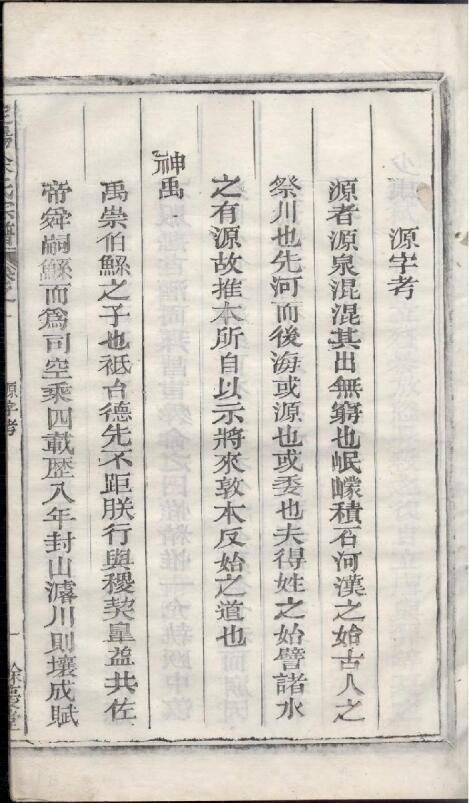 源字考
源者源泉混混其出無窮也岷嶓積石河漢之始古人之
祭川也先河而後海或源也或委也夫得姓之始譬諸水
之有源故推本所自以示將來敦本反始之道也
神禹
禹崇伯鯀之子也祗台德先不距朕行與稷契皐益共佐
帝舜嗣鯀而爲司空乘四載歷八年封山濬川則壤成賦
氏宗譜
源字考
一
餘慶堂